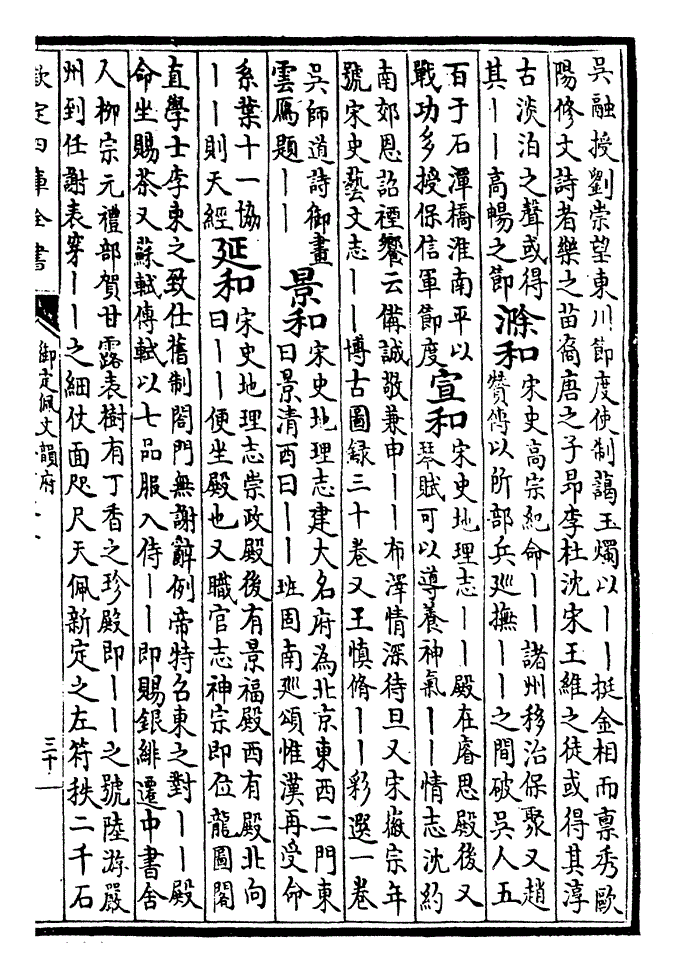 吳融授劉崇望東川節度使制藹玉燭以丨丨挺金相而禀秀歐
陽修文詩者樂之苗裔唐之子昂李杜沈宋王維之徒或得其淳
古淡泊之聲或得
其丨丨高暢之節
滁和
宋史高宗紀命丨丨諸州移治保聚又趙
贊傳以所部兵廵撫丨丨之間破吳人五
百于石潭橋淮南平以
戰功多授保信軍節度
宣和
宋史地理志丨丨殿在睿思殿後又
琴賦可以導養神氣丨丨情志沈約
南郊恩詔禋饗云備誠敬兼申丨丨布澤情深待旦又宋徽宗年
號宋史藝文志丨丨博古圖録三十卷又王慎脩丨丨彩選一卷
吳師道詩御畫
雲鴈題丨丨
景和
宋史地理志建大名府為北京東西二門東
曰景清西曰丨丨班固南廵頌惟漢再受命
系葉十一協
丨丨則天經
延和
宋史地理志崇政殿後有景福殿西有殿北向
曰丨丨便坐殿也又職官志神宗即位龍圖閣
直學士李柬之致仕舊制閤門無謝辭例帝特召柬之對丨丨殿
命坐賜茶又蘇軾傳軾以七品服入侍丨丨即賜銀緋遷中書舍
人柳宗元禮部賀甘露表樹有丁香之珍殿即丨丨之號陸游嚴
州到任謝表穿丨丨之細仗面咫尺天佩新定之左符秩二千石
欽定四庫全書
御定佩文韻府
三十一